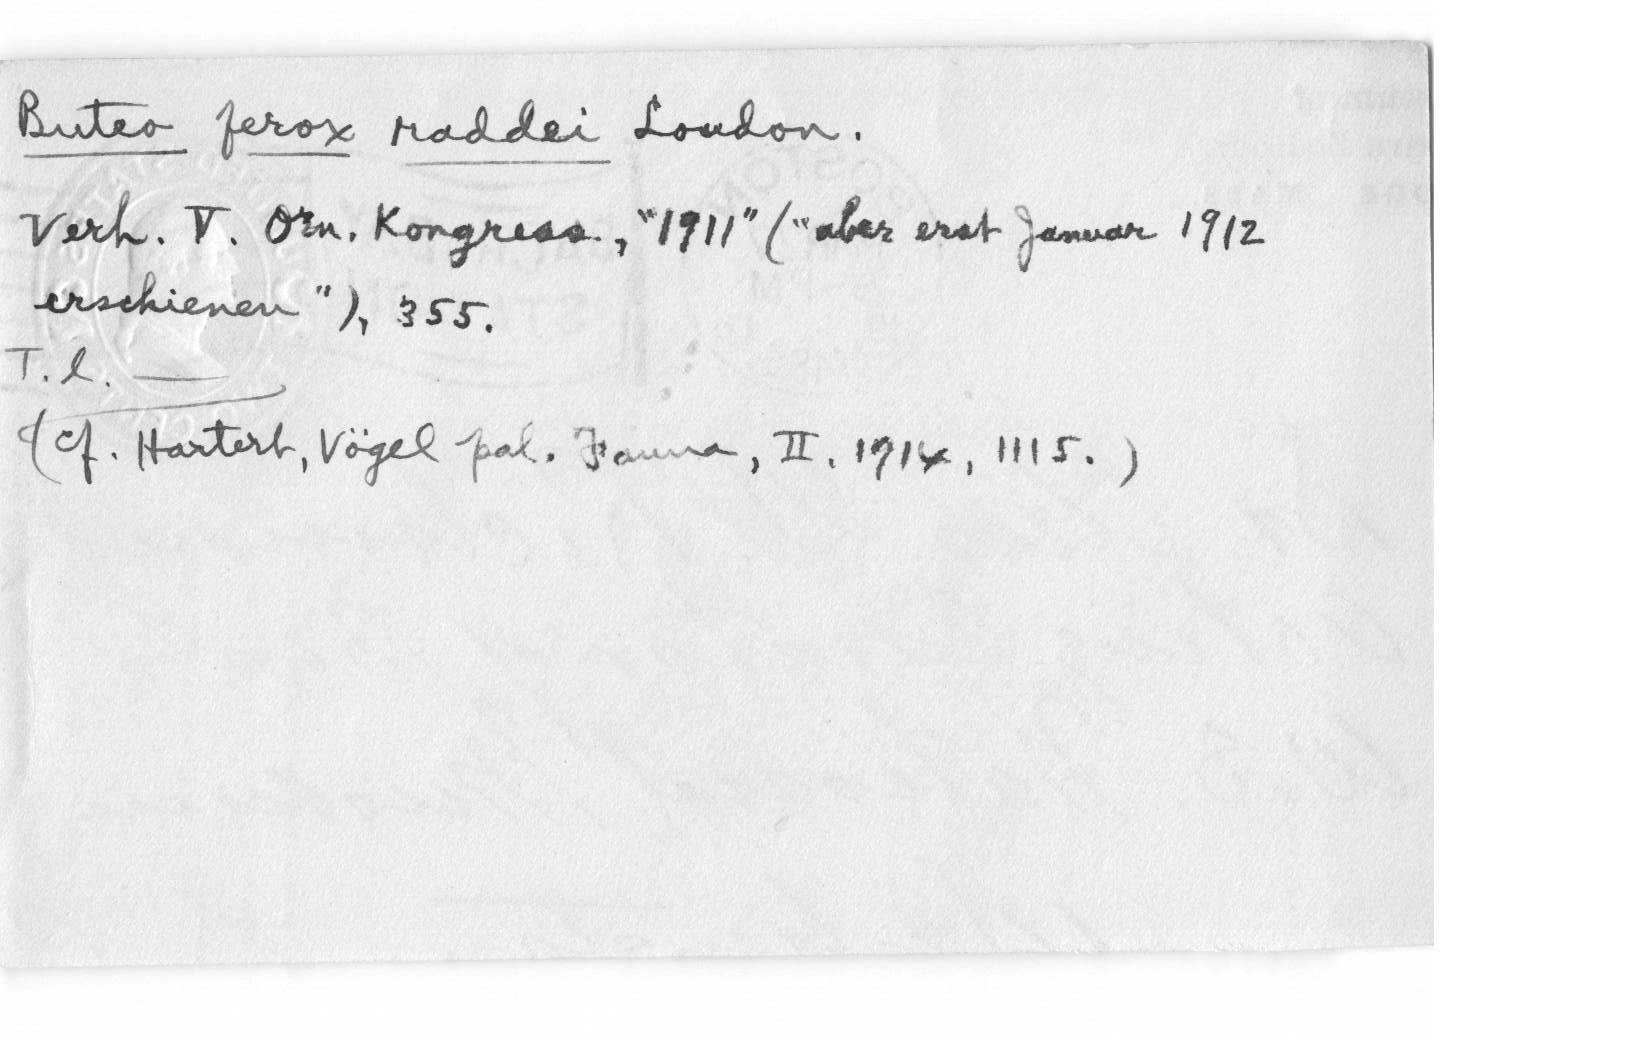 Buteo ferox raddei Loudon.
Verh. V. Orn. Kongress., "1911" ("aber erst Januar 1912
erschienen"), 355.
T. l. ——
(cf. Hartert, Vögel pal. Fauna, II. 1914, 1115.)